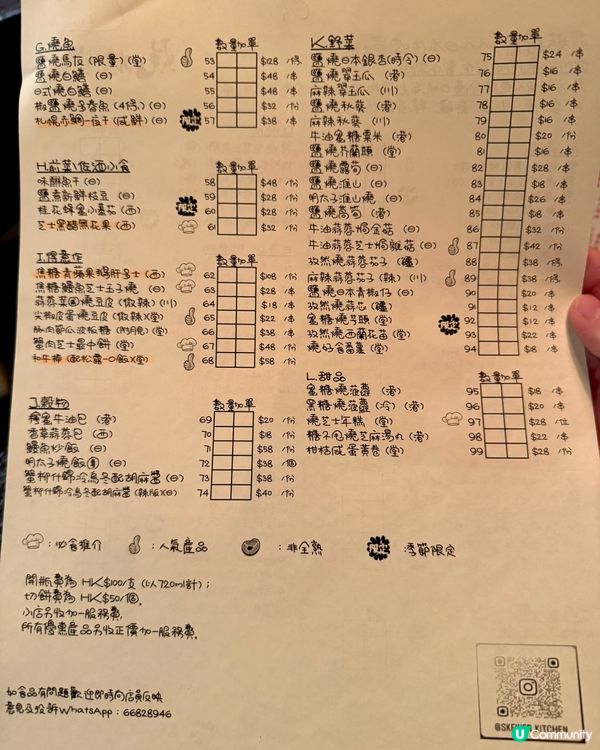 G.燒魚 數量加單
鹽燒馬友(限量)(堂) 53 $28 /條
鹽燒白鱔(日) 54
日式燒白鱔(日) 55
椒鹽燒多春魚(4條)(日) 56 $32 /份
札幌赤鯛一夜干(咸鮮)(日) 57 $38 /串
H.前菜/佐酒小食 數量加單
味醂魚干(日) 58 $48 /份
鹽煮新鮮枝豆(日) 59 $32 /份
桂花蜂蜜小蕃茄(西) 60 $28 /份
芝士黑醋無花果(西) 61 $48 /份
I.像意作 數量加單
焦糖青蘋果鵝肝多士(西) 62 $108 /份
焦糖鰻魚芝士玉子燒(日) 63 $28 /串
蒜蓉菜燒豆皮(微辣)(川) 64 $18 /串
尖椒皮蛋燒豆皮(微辣)(堂) 65 $22 /串
(附月見)(堂) 66 $38 /串
蟹肉芝士最中餅(堂) 67 $48 /份
和牛棒(配松露一口飯)(堂) 68 $58 /份
J.穀物 數量加單
蜂蜜牛油包(港) 69 $20 /份
香草蒜蓉包(西) 70 $18 /份
鰻魚炒飯(日) 71 $58 /份
明太子燒飯(日) 72 $38 /個
蟹柳什錦冷烏冬配胡麻醬(日) 73 $38 /份
蟹柳什錦冷烏冬配胡麻醬(辣版)(日) 74 $40 /份
K.野菜 數量加單
鹽燒日本銀杏(時令)(日) 75 $24 /串
鹽燒翠玉瓜(港) 76 $16 /串
麻辣翠玉瓜(川) 77 $16 /串
鹽燒秋葵(港) 78 $16 /串
麻辣秋葵(川) 79 $16 /串
牛油蜜糖粟米(港) 80 $20 /份
鹽燒芥蘭頭(堂) 81 $16 /串
鹽燒露筍(日) 82 $28 /串
鹽燒淮山(日) 83 $18 /串
明太子淮山燒(日) 84 $28 /串
鹽燒萵筍(港) 85 $18 /串
牛油蒜蓉焗金菇(日) 86 $32 /份
牛油蒜蓉芝士焗雜菇(日) 87 $42 /份
孜然燒蒜蓉茄子(疆) 88 $38 /條
麻辣蒜蓉茄子(辣)(川) 89 $38 /條
鹽燒日本青椒仔(日) 90 $20 /串
孜然燒蒜芯(疆) 91 $12 /串
蜜糖燒芋頭(堂) 92 $12 /串
孜然燒西蘭花苗(堂) 93 $22 /串
燒好食番薯(堂) 94 $18 /串
L.甜品 數量加單
蜜糖燒菠蘿(港) 95 $18 /串
黑糖燒菠蘿(冷)(港) 96 $20 /串
燒芝士年糕(堂) 97 $28 /位
糖不甩燒芝麻湯丸(港) 98 $22 /串
柑桔咸蛋黃卷(堂) 99 $28 /份
:必食推介 :人氣產品 :非全熟 :季節限定
開瓶費為 HK$100/支(以720ml計);
切餅費為 HK$50/個.
小店另收加一服務費,
所有優惠產品另收正價加一服務費.
如食品有問題歡迎即時向店員反映
意見及投訴WhatsApp:66828946
@SKEWED.KITCHEN
U Community